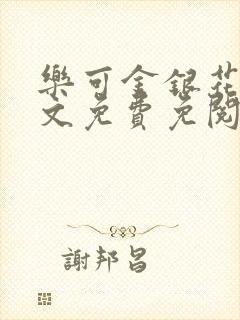 樂可金銀花
文免費免閱
謝邦昌